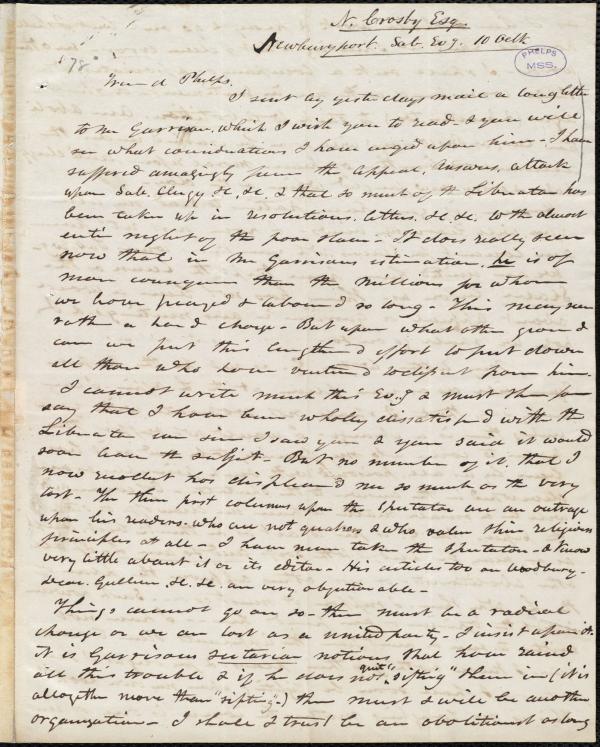 N. Crosby Esq.
Newburyport. Sab. Evg. 10 Octb
PHELPS MSS.
"78"
Friend Phelps.
I sent by yesterdays mail a long letter
to Mr Garrison, which I wish you to read - & you will
see what considerations I have urged upon him - I have
suffered amazingly from the Appeal, Answers, attack
upon Sab. Clergy &c, &c. & that so much of the Liberator has
been taken up in resolutions, letters, &c. &c. to the almost
entire neglect of the poor slave - It does really seem
now that in Mr Garrisons estimation, he is of
more consequence than the millions for whom
we have prayed & labored so long - This may seem
rather a hard charge - But upon what other ground
can we put this lengthened effort to put down
all those who have ventured to differ from him.
I cannot write much this Evg & must therefore
say that I have been wholly dissatisfied with the
Liberator ever since I saw you & you said it would
soon leave the subject - But no number of it, that I
now recollect has displeased me so much as the very
last - The three first columns upon the Spectator are an outrage
upon his readers - who are not quakers & who value their religious
principles at all - I have never taken the Spectator - & know
very little about it or its editor - His articles too on Woodbury -
&c. &c. are very objectionable -
Things cannot go on so - there must be a radical
change or we are lost as a united party - I insist upon it.
it is Garrisons sectarian notions that have raised
all this trouble & if he does not quit "sifting" them in (it is
altogether more than "sifting" -) there must & will be another
organization - I shall I trust be an abolitionist as long